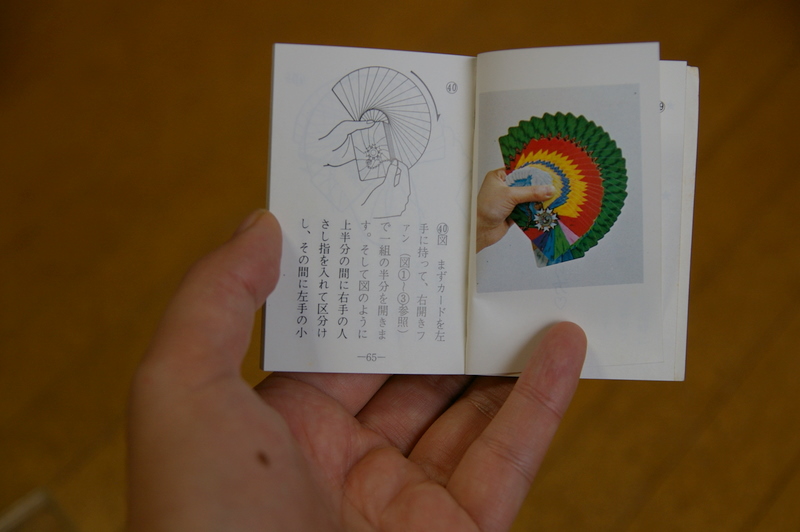 ㊵
㊵図　まずカードを左
手に持って、右開きフ
ァン（図①〜③参照）
で一組の半分を開きま
す。そして図のように
上半分の間に右手の人
さし指を入れて区分け
し、その間に左手の小
—65—